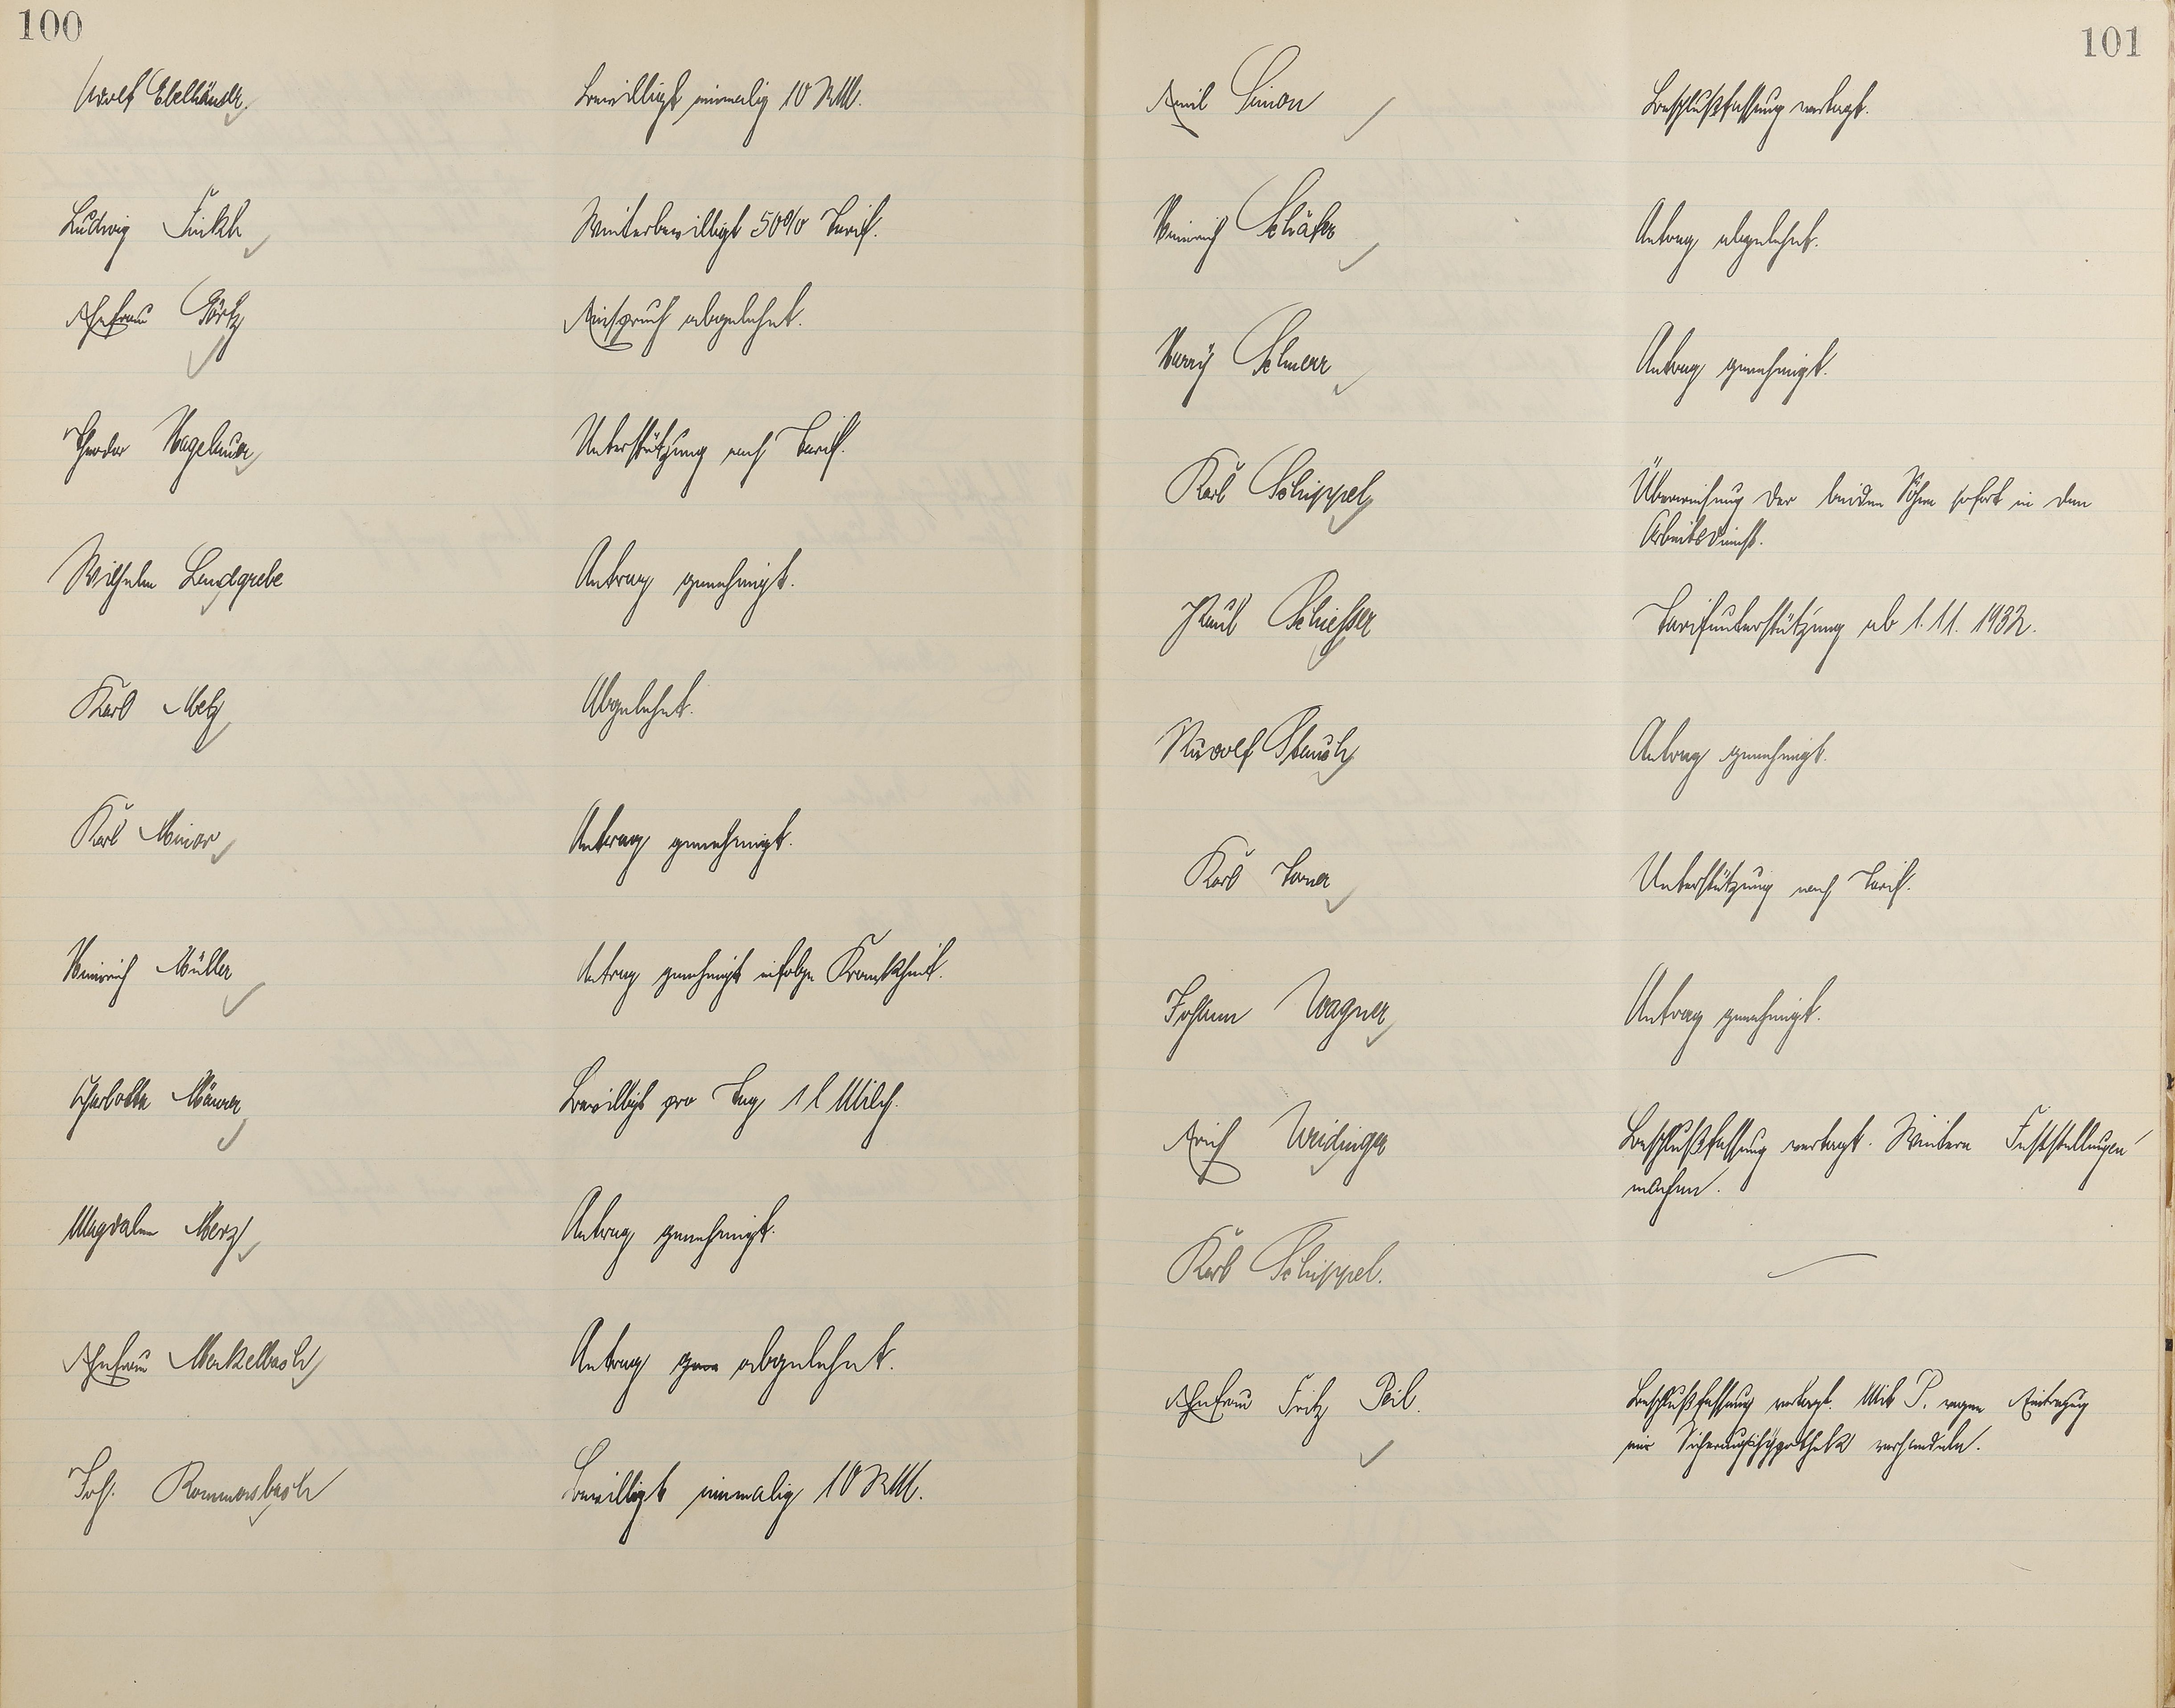 100
Adolf Ebelhäuser
bewilligt einmalig 10 RM.
Ludwig Finkh
Weiterbewilligt 50% Tarif.
Ehefrau Görtz
Einspruch abgelehnt.
Theodor Hagelauer
Unterstützung nach Tarif.
Wilhelm Landgrebe
Antrag genehmigt.
Karl Metz
Abgelehnt.
Karl Minor
Antrag genehmigt.
Heinrich Müller
Antrag genehmigt infolge Krankheit.
Charlotte Maurer
Bewilligt pro Tag 1 l Milch.
Magdalene Merz
Antrag genehmigt.
Ehefrau Merkelbach
Antrag gene abgelehnt.
Joh. Rommersbach
Bewilligt einmalig 10 RM.
101
Emil Simon
Beschlußfassung vertagt.
Heinrich Schäfer
Antrag abgelehnt.
Harry Schnerr
Antrag genehmigt.
Karl Schippel
Überweisung der beiden Söhne sofort in den
Arbeitsdienst.
Paul Schiesser
Tarifunterstützung ab 1.11.1932.
Rudolf Stauch
Antrag genehmigt.
Karl
Unterstützung nach Tarif.
Johann Wagner
Antrag genehmigt.
Erich Weidinger
Beschlußfassung vertagt. Weitere Feststellungen
machen.
Karl Schippel.
Ehefrau Fritz Peil.
Beschlußfassung vertagt. Mit P. wegen Eintragung
einer Sicherungshypothek verhandeln.